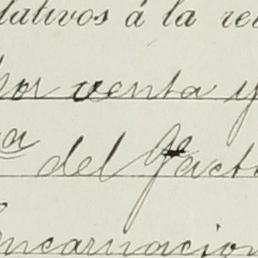 tativos á la re
por venta y
a del
Encarnacion